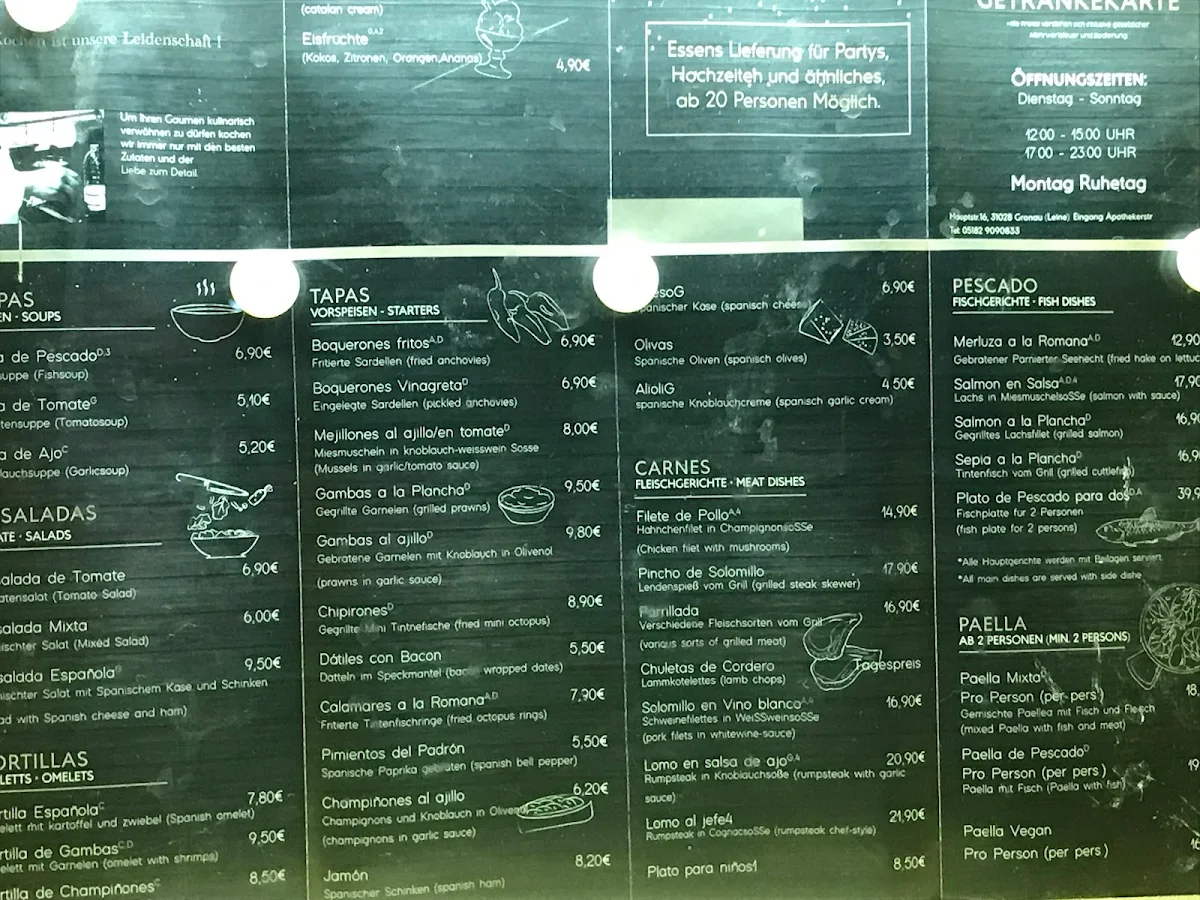 Kochen ist unsere Leidenschaft !
Um Ihren Gaumen kulinarisch
verwöhnen zu dürfen kochen
wir immer nur mit den besten
Zutaten und der
Liebe zum Detail.
(catalan cream)
Eisfrüchte G,A,2
(Kokos, Zitronen, Orangen,Ananas) 4,90€
Essens Lieferung für Partys,
Hochzeiten und ähnliches,
ab 20 Personen Möglich.
GETRÄNKEKARTE
Mehrwertsteuer und Bedienung
ÖFFNUNGSZEITEN:
Dienstag - Sonntag
12:00 - 15:00 UHR
17:00 - 23:00 UHR
Montag Ruhetag
Hauptstr.16, 31028 Gronau (Leine) Eingang Apothekerstr
Tel: 05182 9090833
PAS
EN • SOUPS
a de Pescado D,3 6,90€
suppe (Fishsoup)
a de Tomate G 5,10€
tensuppe (Tomatosoup)
a de Ajo C 5,20€
lauchsuppe (Garlicsoup)
SALADAS
ATE • SALADS
salada de Tomate 6,90€
atensalat (Tomato Salad)
salada Mixta 6,00€
ischter Salat (Mixed Salad)
salada Española G 9,50€
ischter Salat mit Spanischem Käse und Schinken
ad with Spanish cheese and ham)
ORTILLAS
LETTS • OMELETS
rtilla Española C 7,80€
elett mit kartoffel und zwiebel (Spanish omelet)
rtilla de Gambas C,D 9,50€
elett mit Garnelen (omelet with shrimps)
rtilla de Champiñones C 8,50€
TAPAS
VORSPEISEN - STARTERS
Boquerones fritos A,D 6,90€
Fritierte Sardellen (fried anchovies)
Boquerones Vinagreta D 6,90€
Eingelegte Sardellen (pickled anchovies)
Mejillones al ajillo/en tomate D 8,00€
Miesmuscheln in knoblauch-weisswein Sosse
(Mussels in garlic/tomato sauce)
Gambas a la Plancha D 9,50€
Gegrillte Garnelen (grilled prawns)
Gambas al ajillo D 9,80€
Gebratene Garnelen mit Knoblauch in Olivenöl
(prawns in garlic sauce)
Chipirones D 8,90€
Gegrillte Mini Tintnefische (fried mini octopus)
Dátiles con Bacon 5,50€
Datteln im Speckmantel (bacon wrapped dates)
Calamares a la Romana A,D 7,90€
Fritierte Tintenfischringe (fried octopus rings)
Pimientos del Padrón 5,50€
Spanische Paprika gebraten (spanish bell pepper)
Champiñones al ajillo 6,20€
Champignons und Knoblauch in Olivenöl
(champignons in garlic sauce)
Jamón 8,20€
Spanischer Schinken (spanish ham)
esoG 6,90€
panischer Käse (spanish cheese)
Olivas 3,50€
Spanische Oliven (spanish olives)
AlioliG 4 50€
spanische Knoblauchcreme (spanish garlic cream)
CARNES
FLEISCHGERICHTE • MEAT DISHES
Filete de Pollo A,4 14,90€
Hähnchenfilet in ChampignonsoSSe
(Chicken filet with mushrooms)
Pincho de Solomillo 17,90€
Lendenspieß vom Grill (grilled steak skewer)
Parrillada 16,90€
Verschiedene Fleischsorten vom Grill
(various sorts of grilled meat)
Chuletas de Cordero Tagespreis
Lammkotelettes (lamb chops)
Solomillo en Vino blanco A,4 16,90€
Schweinefilettes in WeiSSweinsoSSe
(pork filets in whitewine-sauce)
Lomo en salsa de ajo G,4 20,90€
Rumpsteak in Knoblauchsoße (rumpsteak with garlic
sauce)
Lomo al jefe4 21,90€
Rumpsteak in CognacsoSSe (rumpsteak chef-style)
Plato para niños1 8,50€
PESCADO
FISCHGERICHTE • FISH DISHES
Merluza a la Romana A,D 12,90
Gebratener Parnierter Seehecht (fried hake on lettuc
Salmon en Salsa A,D,4 17,9
Lachs in MiesmuschelsoSSe (salmon with sauce)
Salmon a la Plancha D 16,9
Gegrilltes Lachsfilet (grilled salmon)
Sepia a la Plancha D 16,9
Tintenfisch vom Grill (grilled cuttlefish)
Plato de Pescado para dos D,A 39,
Fischplatte für 2 Personen
(fish plate for 2 persons)
*Alle Hauptgerichte werden mit Beilagen serviert
*All main dishes are served with side dishe
PAELLA
AB 2 PERSONEN (MIN. 2 PERSONS)
Paella Mixta D
Pro Person (per pers) 18,
Gemischte Paellea mit Fisch und Fleisch
(mixed Paella with fish and meat)
Paella de Pescado D
Pro Person (per pers.) 19
Paella mit Fisch (Paella with fish)
Paella Vegan
Pro Person (per pers.) 16